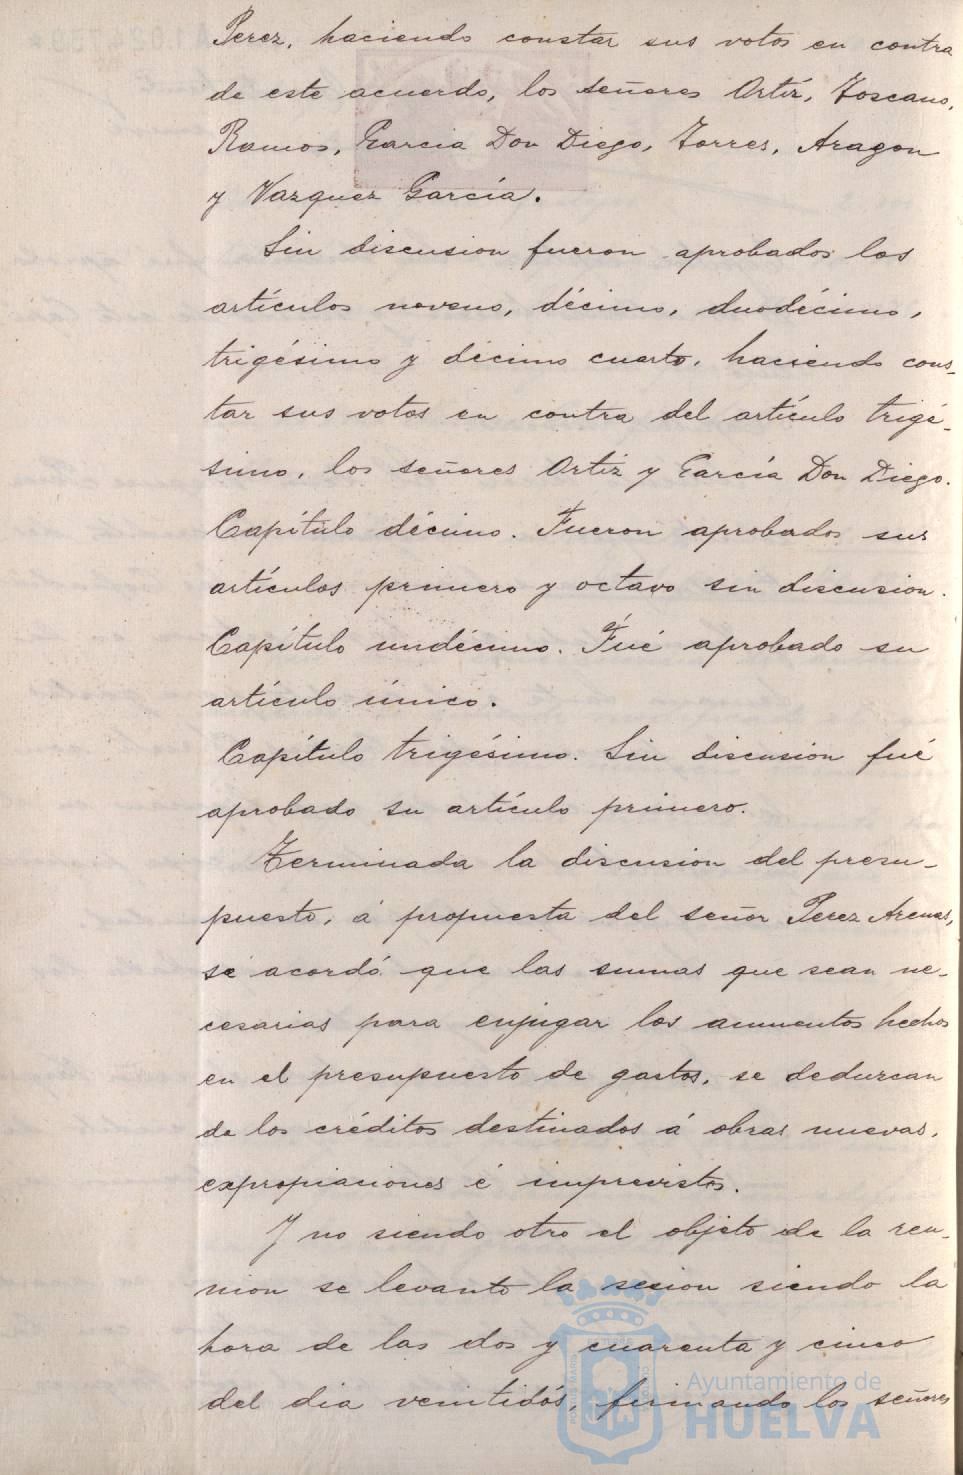 Perez, haciendo constar sus votos en contra
de este acuerdo, los señores Ortíz, Toscano,
Ramos, García Don Diego, Torres, Aragon
y Vazquez García.
Sin discusion fueron aprobados los
artículos noveno, décimo, duodécimo,
trigésimo y décimo cuarto, haciendo cons-
tar sus votos en contra del artículo trigé-
simo, los señores Ortiz y García Don Diego.
Capítulo décimo. Fueron aprobados sus
artículos primero y octavo sin discusion.
Capítulo undécimo. Fué aprobado su
artículo único.
Capítulo trigésimo. Sin discusion fué
aprobado su artículo primero.
Terminada la discusion del presu-
puesto, á propuesta del señor Perez Arenas,
se acordó que las sumas que sean ne-
cesarias para enjugar los aumentos hechos
en el presupuesto de gastos, se deduzcan
de los créditos destinados á obras nuevas,
expropiaciones é imprevistos.
Y no siendo otro el objeto de la reu-
nion se levantó la sesion siendo la
hora de las dos y cuarenta y cinco
del dia veintidós, firmando los señores
Ayuntamiento de
HUELVA